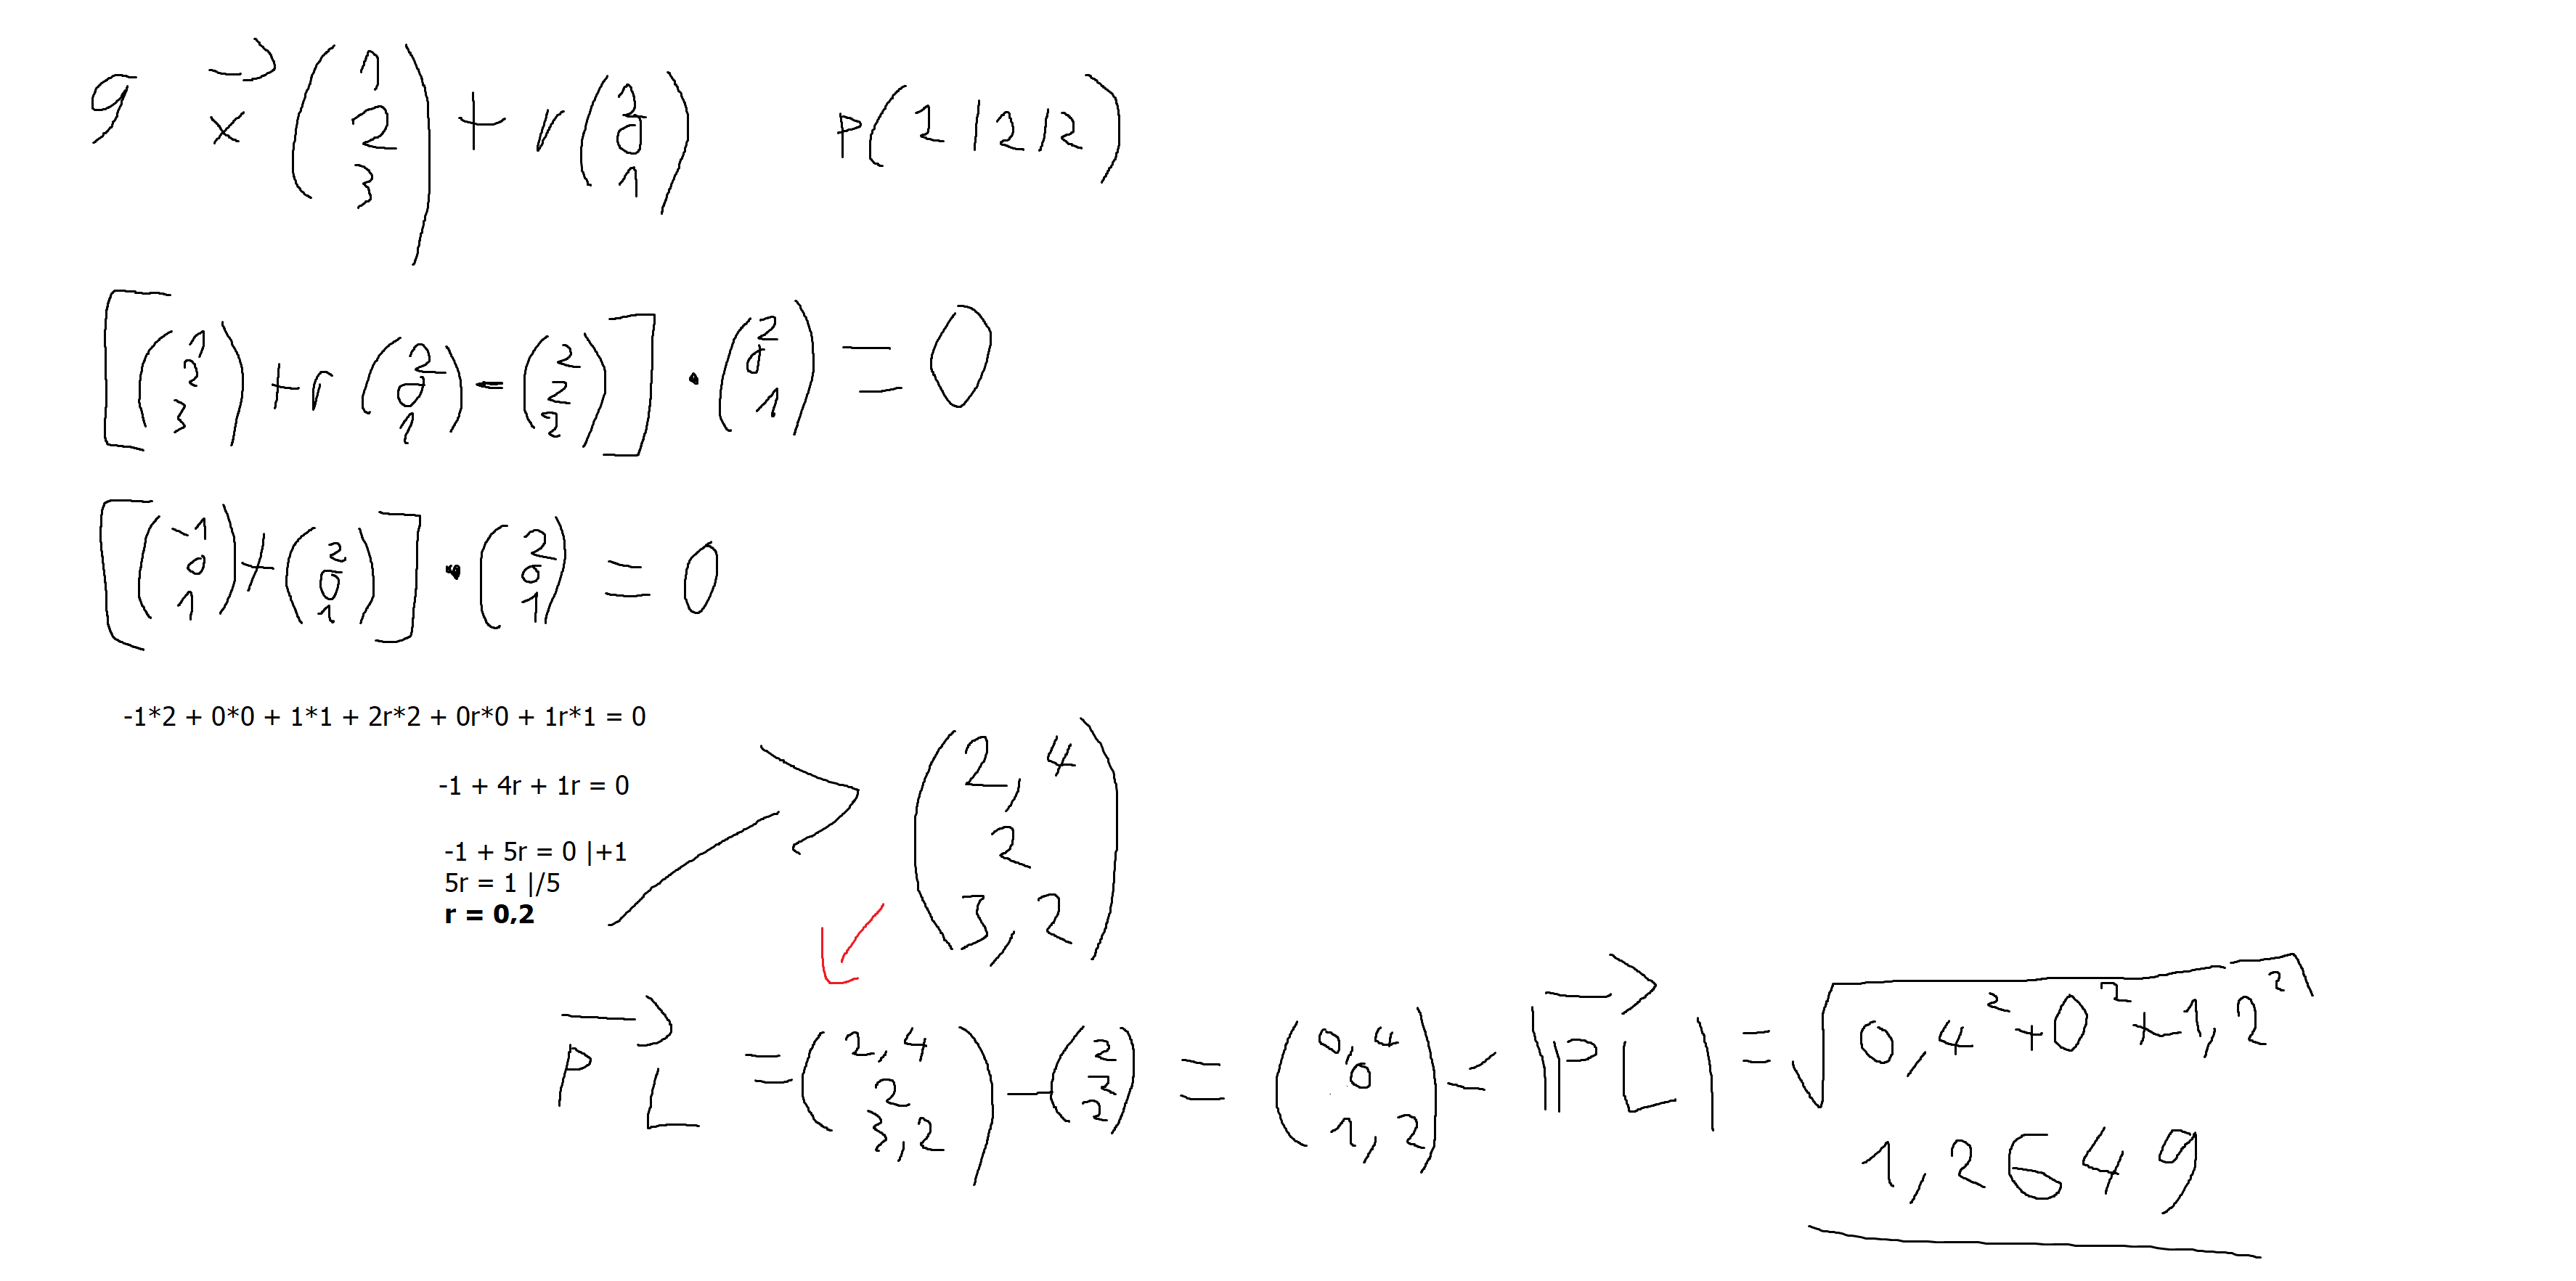 g x→ (1 2 3) + r(2 0 1) P(2|2|2)
[(1 2 3) + r (2 0 1) - (2 2 2)] · (2 0 1) = 0
[(-1 0 1) + (2 0 1)] · (2 0 1) = 0
-1*2 + 0*0 + 1*1 + 2r*2 + 0r*0 + 1r*1 = 0
-1 + 4r + 1r = 0
-1 + 5r = 0 |+1
5r = 1 |/5
r = 0,2
(2,4 2 3,2)
PL→ = (2,4 2 3,2) - (2 2 2) = (0,4 0 1,2) = |PL→| = √0,4²+0²+1,2²
1,2649